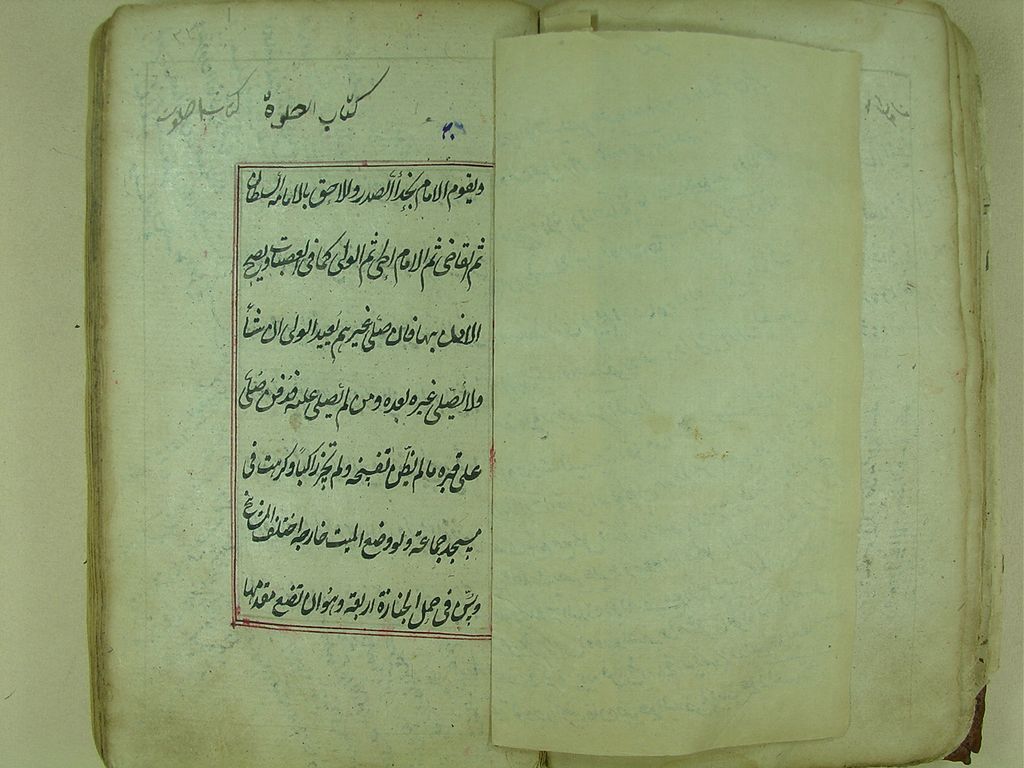 كتاب الصلوة كتاب صلوت
٢٠٦
ويقوم الامام بحذأ الصدر والاحق بالامامة السلطان
ثم القاضى ثم الامام الحى ثم الولى كما فى العصبات ويصح
الاذن بها فان صلى غيرهم يعيد الولى ان شأ
ولا يصلى غيره بعده ومن لم يصلى عليه فدفن صلى
على قبره ما لم يظن تفسخه ولم تجز راكبا وكرهت فى
مسجد جماعة ولو وضع الميت خارجه اختلف المشايخ
وسن فى حمل الجنازة اربعة وهو ان تضع مقدمها